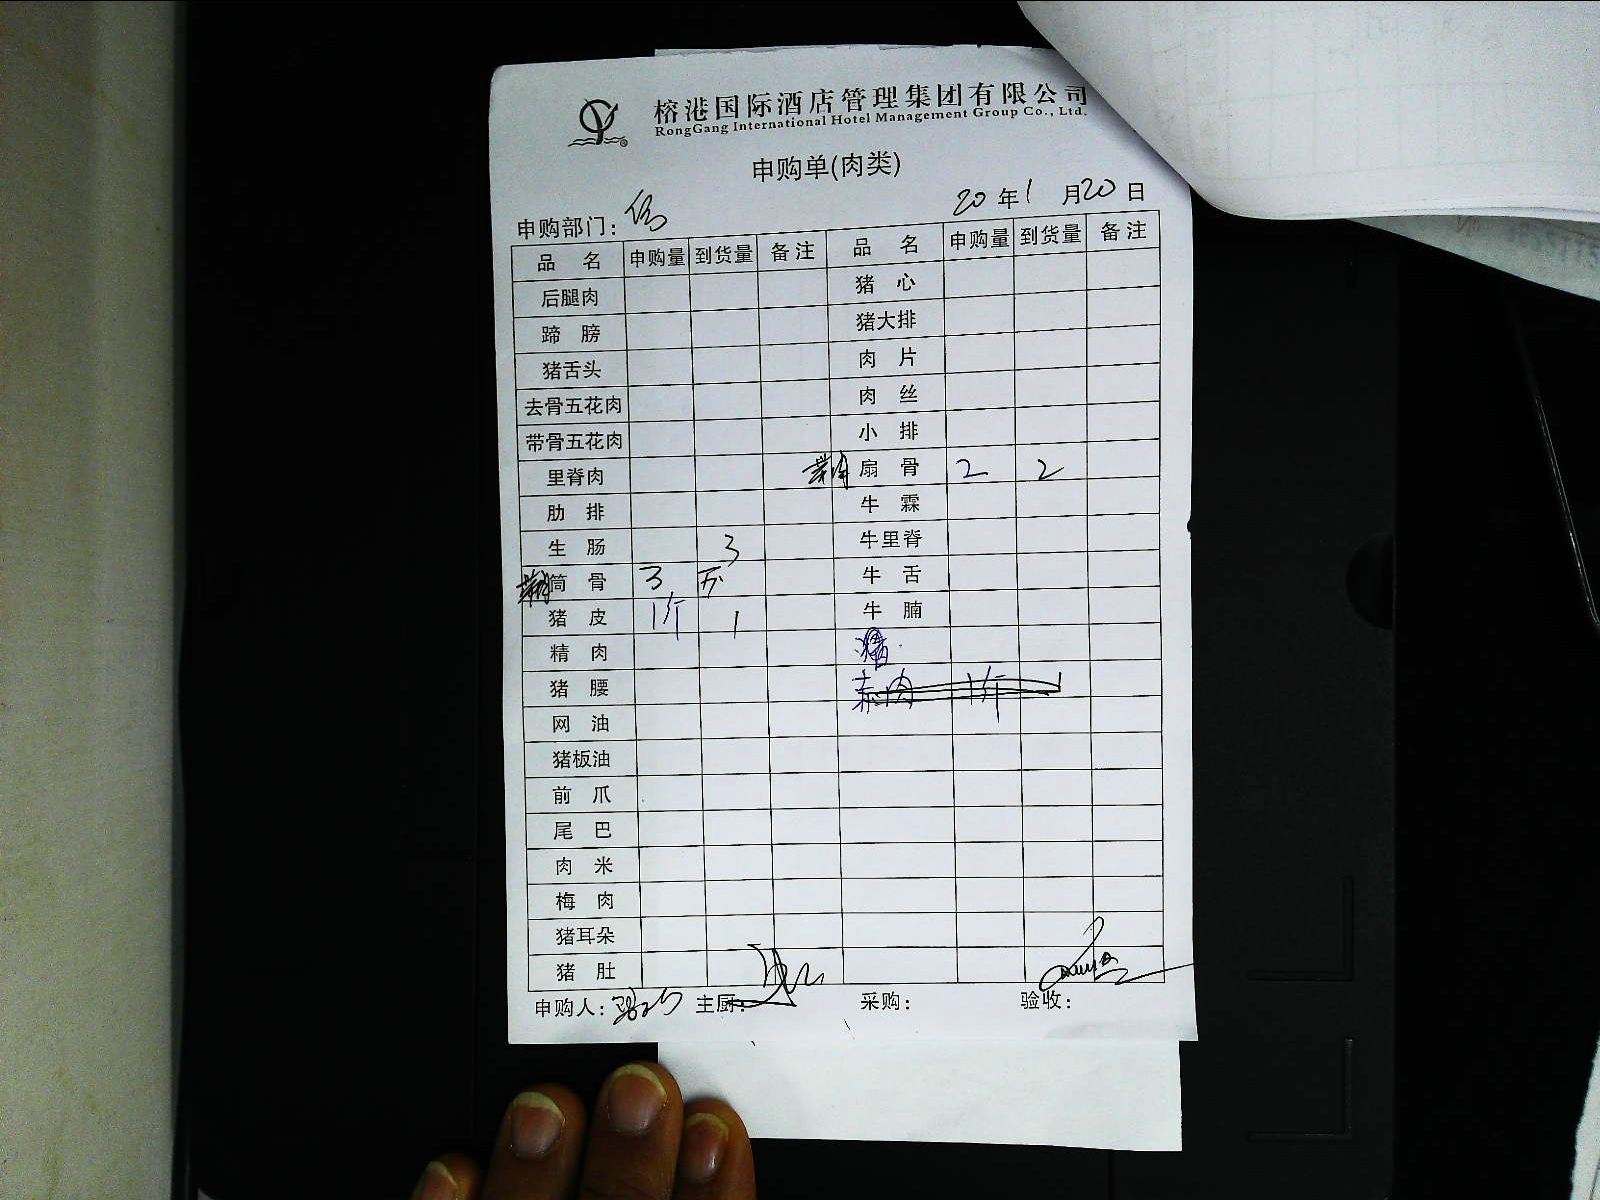 榕港国际酒店管理集团有限公司
RongGang International Hotel Management Group Co., Ltd.
申购单(肉类)
申购部门: 20年1月20日
品名 申购量 到货量 备注 品名 申购量 到货量 备注
后腿肉 猪心
蹄膀 猪大排
猪舌头 肉片
去骨五花肉 肉丝
带骨五花肉 小排
里脊肉 扇骨 2 2
肋排 牛霖
生肠 3 牛里脊
筒骨 3 牛舌
猪皮 1斤 1 牛腩
精肉
猪腰 肉 1斤
网油
猪板油
前爪
尾巴
肉米
梅肉
猪耳朵
猪肚
申购人: 主厨: 采购: 验收: